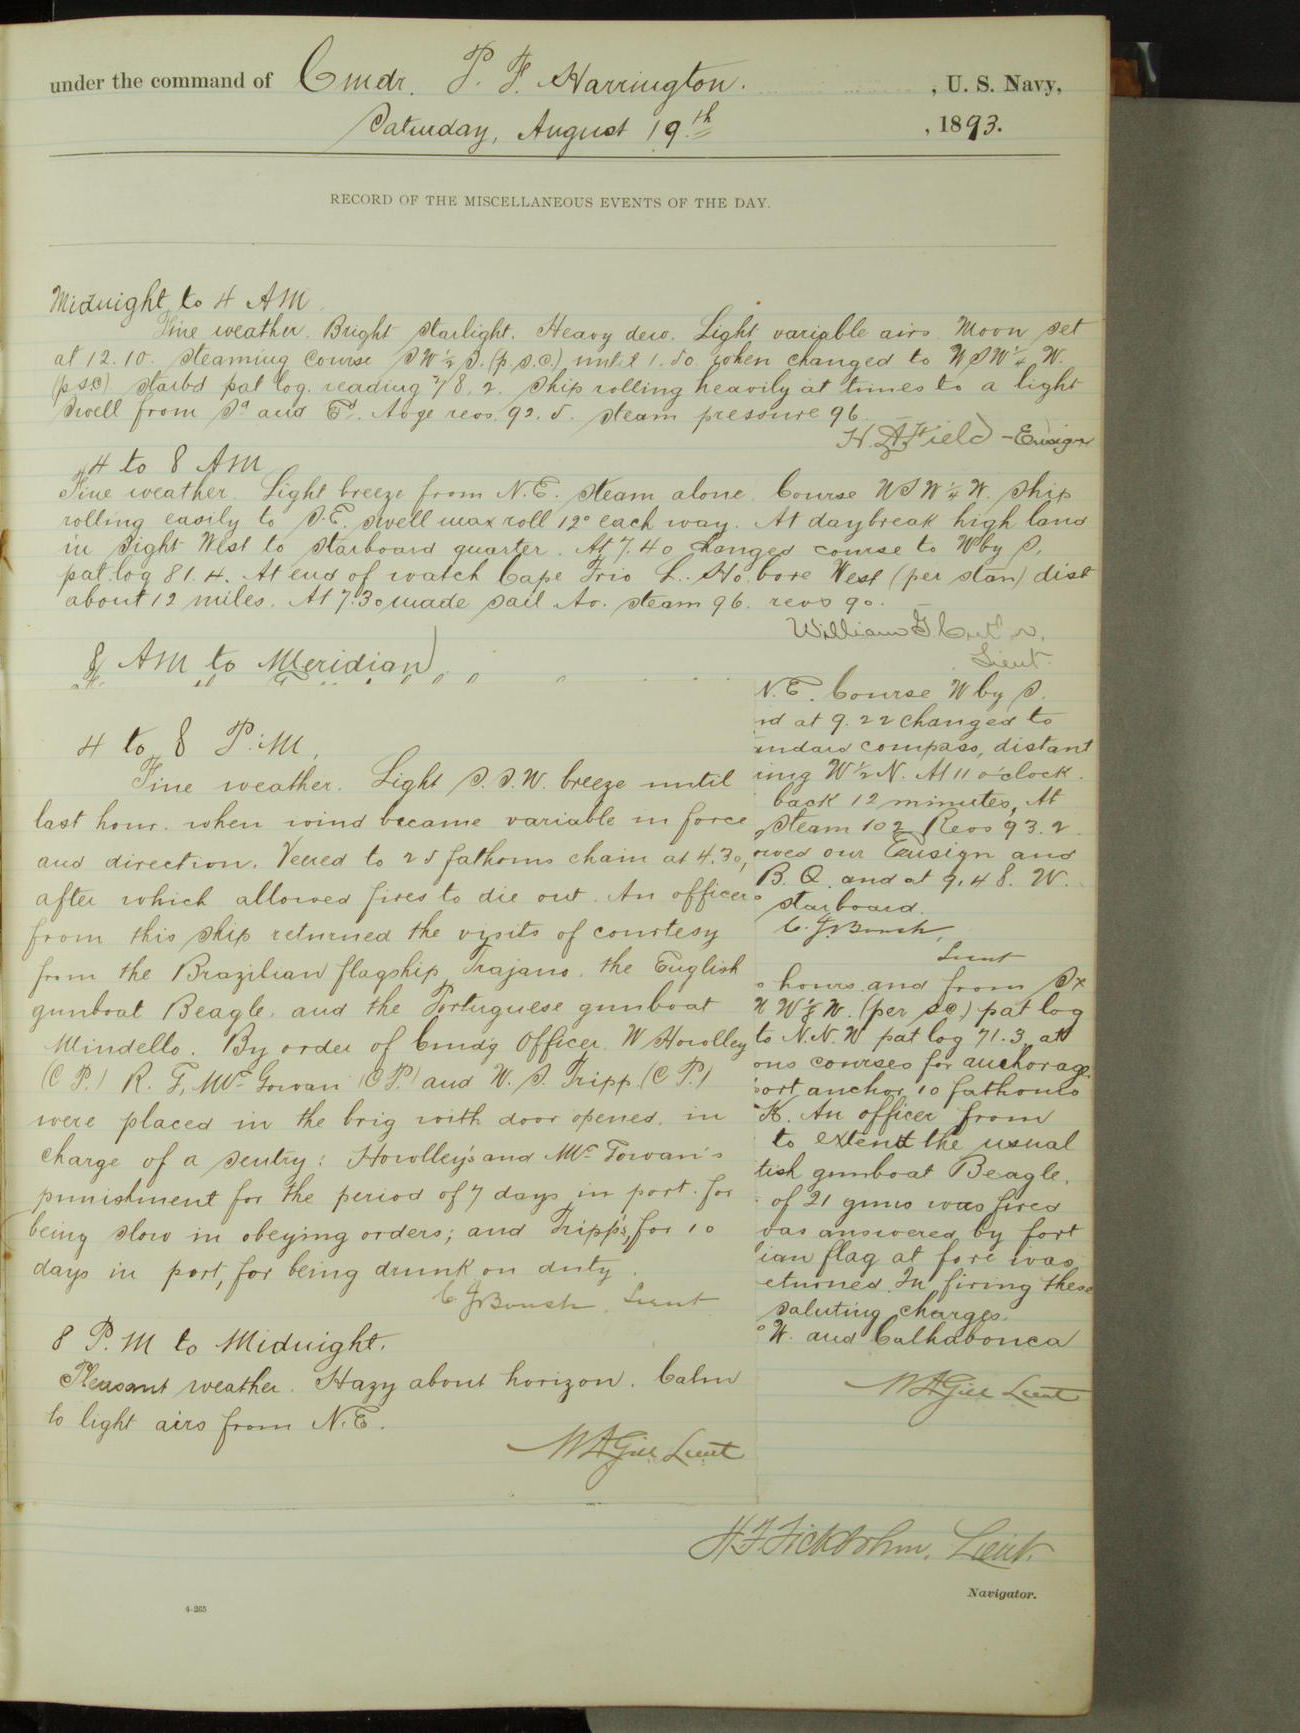 under the command of Cmdr. P. F. Harrington. , U. S. Navy,
Saturday, August 19th , 1893.
RECORD OF THE MISCELLANEOUS EVENTS OF THE DAY.
Midnight to 4 AM.
Fine weather. Bright starlight. Heavy dew. Light variable airs. Moon set
at 12.10. Steaming course SW½S. (p.s.c.) until 1.50 when changed to WSW¼W.
(p.s.c) starb'd pat log. reading 78.2. Ship rolling heavily at times to a light
swell from Sd and Ed. Avge revs. 92.5. Steam pressure 96.
H. A. Field - Ensign
4 to 8 AM
Fine weather. Light breeze from N.E. Steam alone. Course WSW¼W. Ship
rolling easily to S.E. swell max roll 12° each way. At daybreak high land
in sight West to starboard quarter. At 7.40 changed course to W by S.
pat. log 81.4. At end of watch Cape Frio L. Ho. bore West (per stan) dist
about 12 miles. At 7.30 made sail Av. steam 96. revs 90.
William G. Cutler,
Lieut.
8 AM to Meridian
N.E. Course W by S.
nd at 9.22 changed to
andard compass, distant
ring W½N. At 11 o'clock.
back 12 minutes, At
Steam 102 Revs 93.2
owed our Ensign and
B. Q. and at 9.48. W.
starboard.
C. J. Boush,
Lieut
4 to 8 P.M.
Fine weather. Light S.S.W. breeze until
last hour. when wind became variable in force
and direction. Veered to 25 fathoms chain at 4.30,
after which allowed fires to die out. An officer
from this ship returned the visits of courtesy
from the Brazilian flagship Trajano. the English
gunboat Beagle, and the Portuguese gunboat
Mindello. By order of Cmd'g Officer. W Howlley
(C P.) R. F. McGowan (C P.) and W. S. Tripp (C P.)
were placed in the brig with door opened, in
charge of a sentry: Howlley's and McGowan's
punishment for the period of 7 days in port. for
being slow in obeying orders; and Tripp's, for 10
days in port, for being drunk on duty.
C. J. Boush, Lieut
hours. and from
W. (per sc) pat log
to N.N.W pat log 71.3, at
ous courses for anchorage.
port anchor, 10 fathoms
K. An officer from
to extend the usual
tish gunboat Beagle.
of 21 guns was fired
was answered by fort
ian flag at fore was
eturned. In firing these
saluting charges.
W. and Calhabonca
W A Gill Lieut
8 P.M to Midnight.
Pleasant weather. Hazy about horizon. Calm
to light airs from N.E.
W A Gill Lieut
Lieut.
Navigator.
4-265